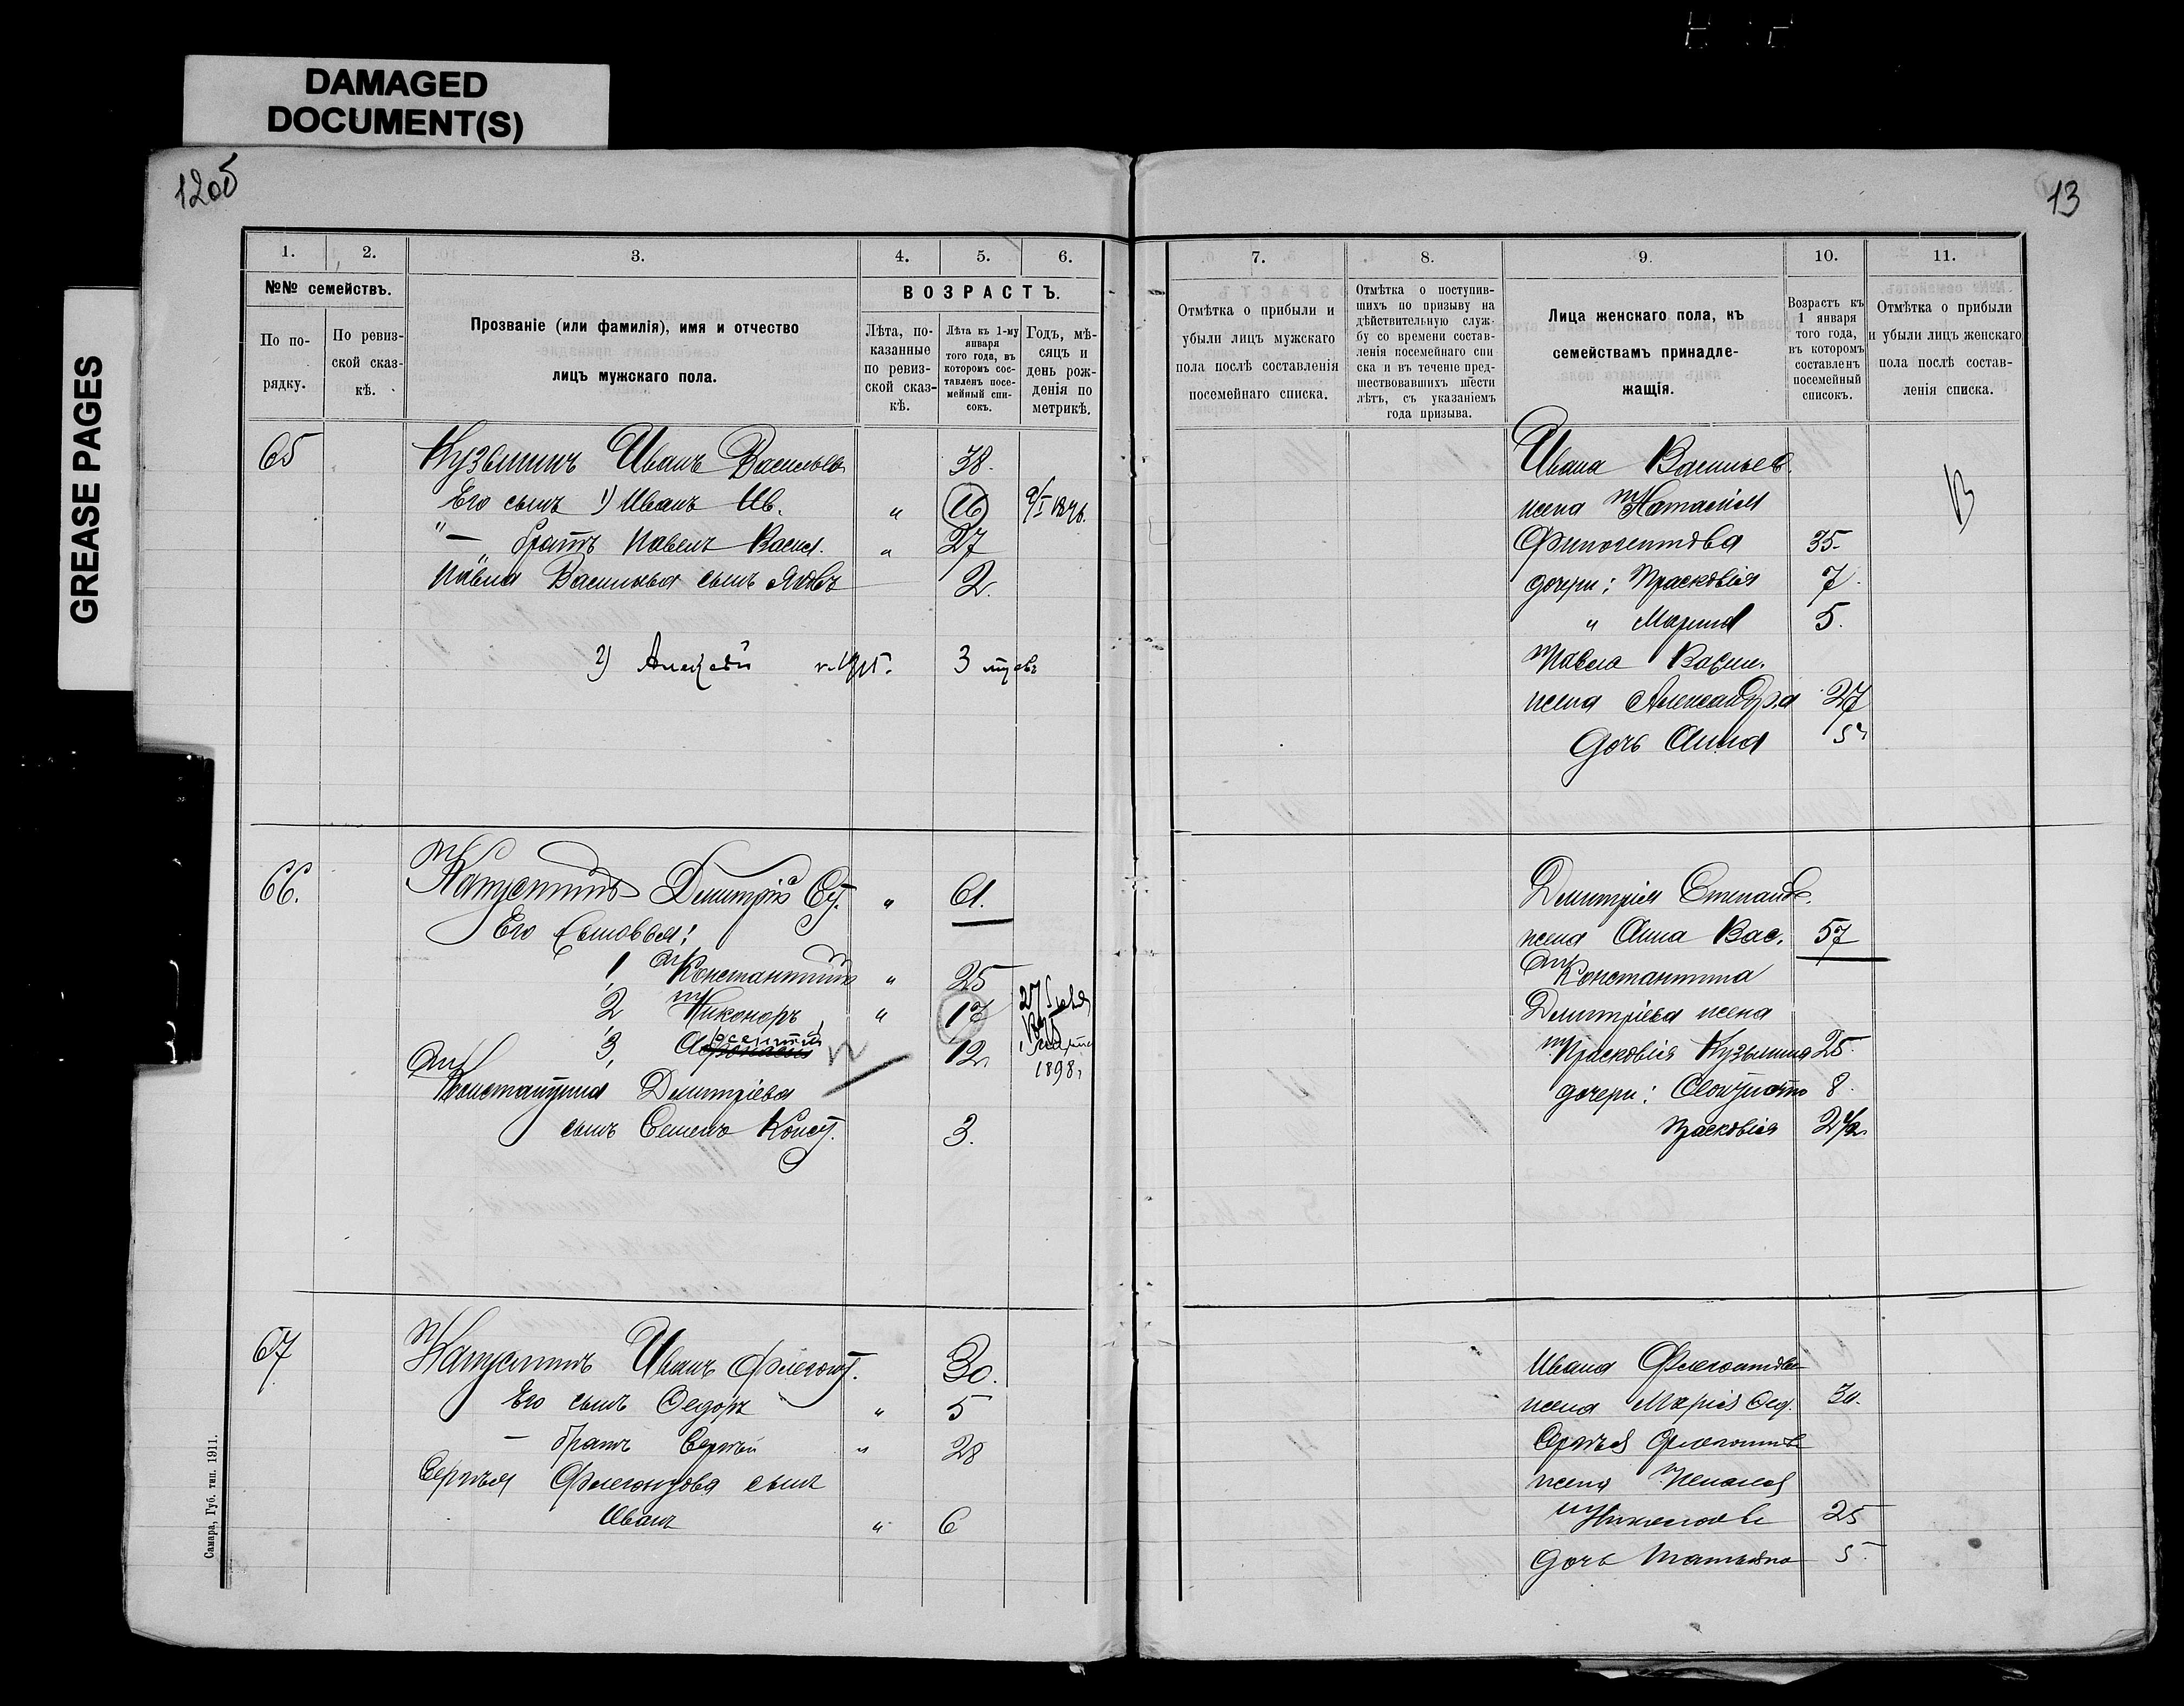 DAMAGED
DOCUMENT(S)
GREASE PAGES
12об
13
1.
2.
3.
4.
5.
6.
№№ семействъ.
ВОЗРАСТЪ.
По по-
рядку.
По ревиз-
ской сказ-
кѣ.
Прозваніе (или фамилія), имя и отчество
лицъ мужскаго пола.
Лѣта, по-
казанные
по ревиз-
ской сказ-
кѣ.
Лѣта къ 1-му
января
того года, въ
которомъ сос-
тавленъ посе-
мейный спи-
сокъ.
Годъ, мѣ-
сяцъ и
день рож-
денія по
метрикѣ.
65 Кузьминъ Иванъ Васильев 38.
Его сынъ 1) Иванъ Ив. " 16
"— братъ Павелъ Васил. " 27
Павла Васильева сынъ Яковъ 2.
2) Алексѣй 3
66. Капустинъ Дмитрій Ст. " 61.
Его сыновья:
1, Константинъ " 25
2 Никоноръ " 17
3, 12. 1898,
Константина Дмитріева
сынъ Семенъ Конст. 3.
67 Капустинъ Иванъ Флегонт. 30.
Его сынъ Ѳедоръ " 5
— братъ Сергѣй " 28
Сергѣя Флегонтова сынъ
Иванъ " 6
Самара, Губ. тип. 1911.
7.
8.
9.
10.
11.
Отмѣтка о прибыли и
убыли лицъ мужскаго
пола послѣ составленія
посемейнаго списка.
Отмѣтка о поступив-
шихъ по призыву на
дѣйствительную служ-
бу со времени состав-
ленія посемейнаго спи
ска и въ теченіе пред-
шествовавшихъ шести
лѣтъ, съ указаніемъ
года призыва.
Лица женскаго пола, къ
семействамъ принадле-
жащія.
Возрастъ къ
1 января
того года,
въ которомъ
составленъ
посемейный
списокъ.
Отмѣтка о прибыли
и убыли лицъ женскаго
пола послѣ состав-
ленія списка.
Ивана Васильев.
жена Наталія
35.
дочери: Прасковія 7.
" Марина 5.
Павла Васил.
жена Александра 27
дочь Анна 5
Дмитрія Степанов.
жена Анна Вас. 57
Константина
Дмитріева жена
Прасковія Кузьмина 25.
дочери: 8.
Прасковія 2½
Ивана Флегонтова
жена Марія Ѳед. 30.
Сергѣя Флегонтов
жена
Николаев 25
дочь Татьяна 5.